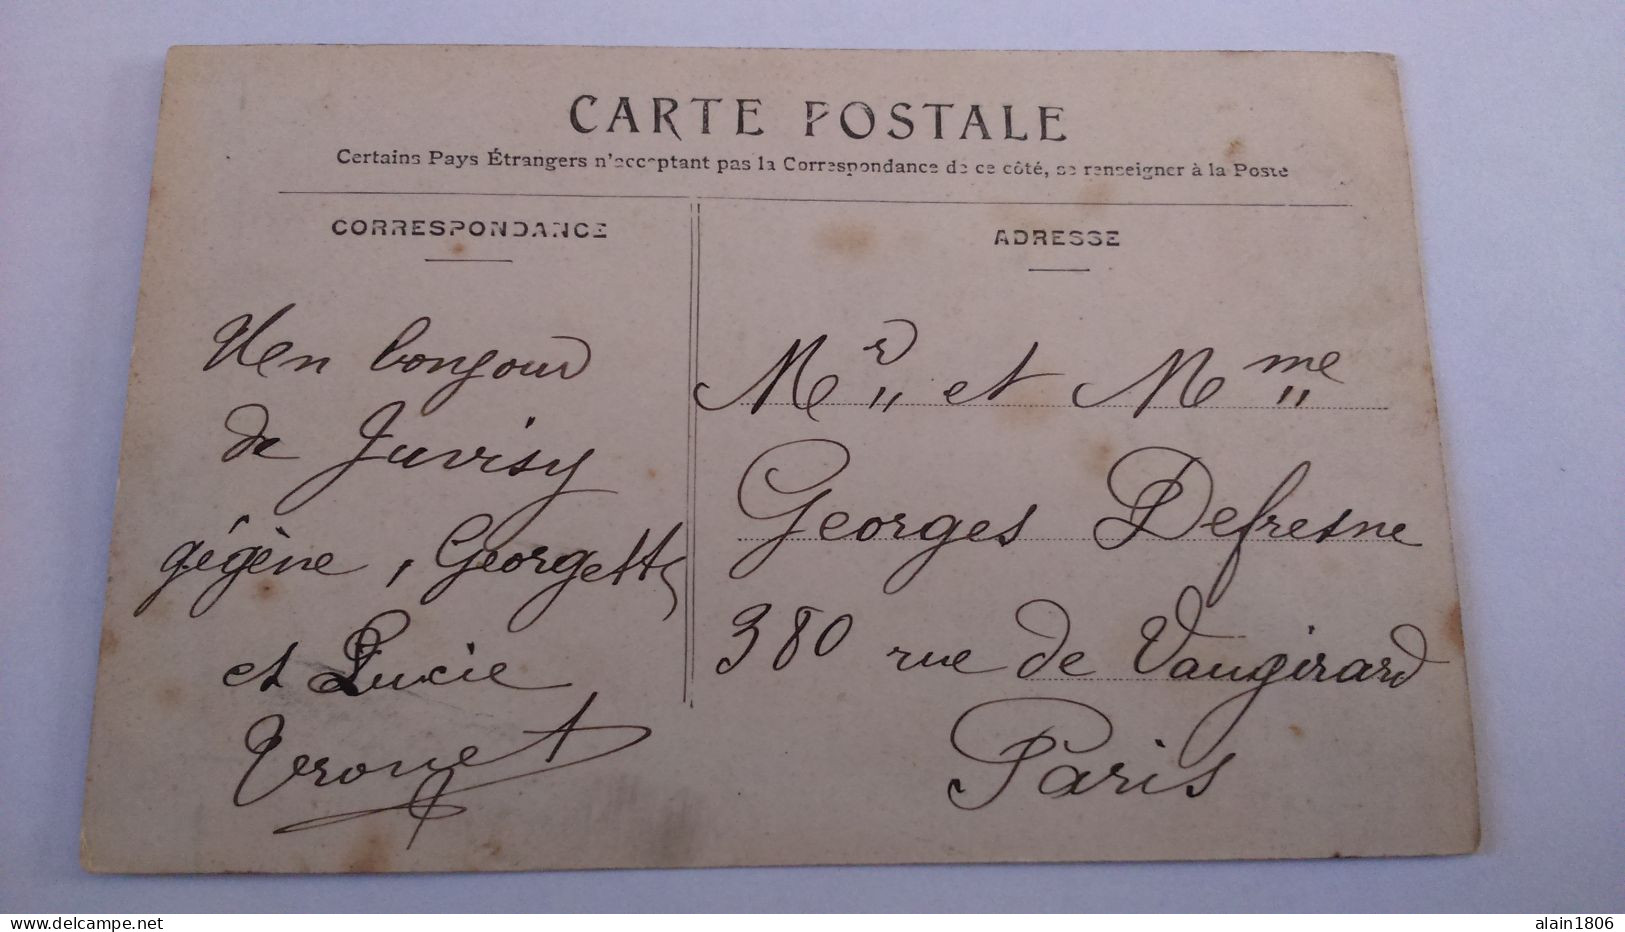 CARTE POSTALE
Certains Pays Étrangers n'acceptant pas la Correspondance de ce côté, se renseigner à la Poste
CORRESPONDANCE
Un bonjour
de Juvisy
gégène, Georgette
et Lucie
ADRESSE
Mr et Mme
Georges Defresne
380 rue de Vaugirard
Paris
www.delcampe.net
alain1806